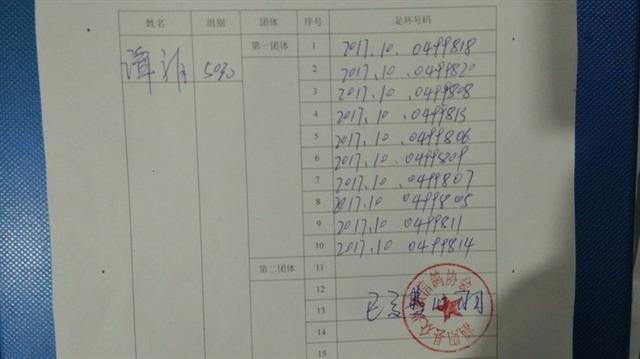 姓名 组别 团体 序号 足环号码
谭 5090 第一团体 1 2017.10.0499818
2 2017.10.0499820
3 2017.10.0499808
4 2017.10.0499813
5 2017.10.0499806
6 2017.10.0499809
7 2017.10.0499807
8 2017.10 0499805
9 2017.10 0499811
10 2017.10 0499814
第二团体 11
12
13
14
15